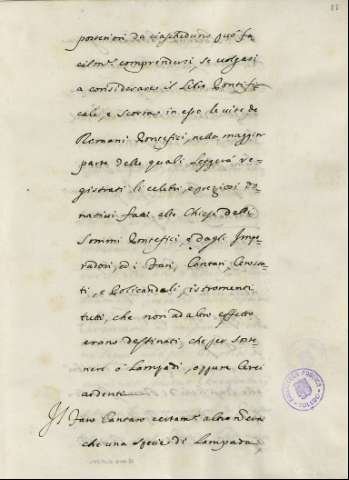 posteriori da ciascheduno può fa
cilm.e comprendersi, se volgasi
a considerare il Libro Pontifi
cale, e scorse in esso le vite de
Romani Pontefici, nella maggior
parte delle quali leggerà re-
gistrati li celebri, e preziosi Do
nativi fatti alle Chiese dalli
Sommi Pontefici, e dagli Impe-
radori, di Fari, Cantari, Ceros-
ti, e Policandali, istromenti
tutti, che non ad altro effetto
erano destinati, che per soste
nere ò Lampadi, oppure Cerei
ardente
Il Faro Cantaro certam.e altro non era
che una specie di Lampada